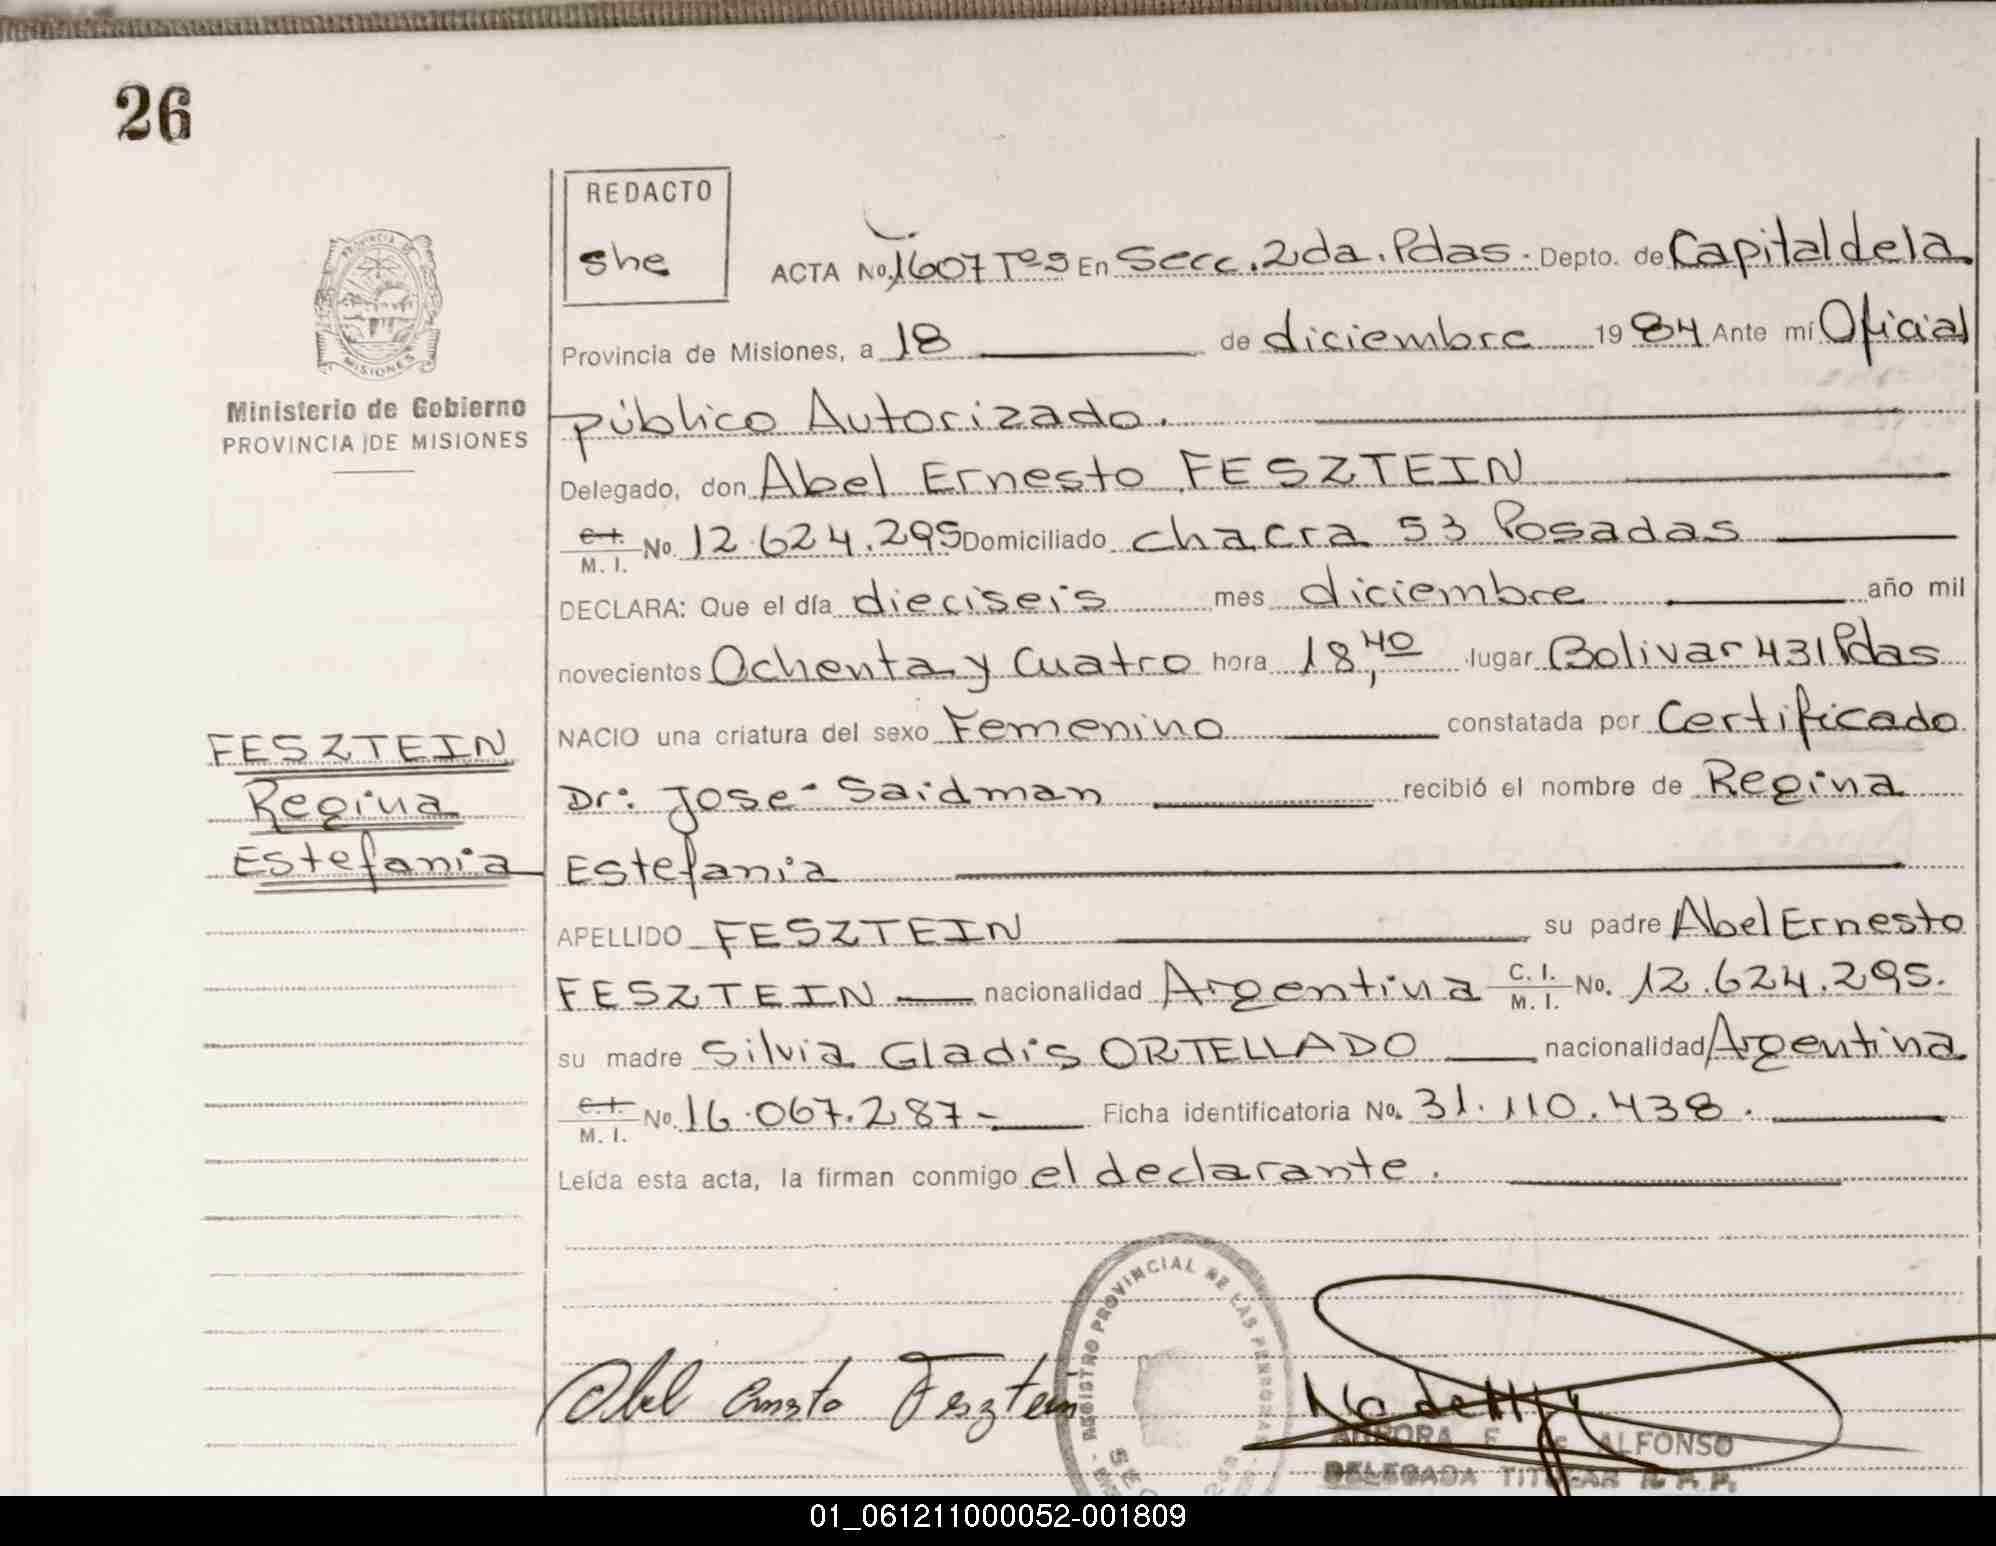 26
REDACTO
she
PROVINCIA DE
MISIONES
Ministerio de Gobierno
PROVINCIA DE MISIONES
ACTA No. 1607 Tº9 En Secc. 2da. Pdas. Depto. de Capital de la
Provincia de Misiones, a 18 de diciembre 1984 Ante mí Oficial
público Autorizado.
Delegado, don Abel Ernesto FESZTEIN
C.I. M. I. No. 12.624.295 Domiciliado chacra 53 Posadas
DECLARA: Que el día dieciseis mes diciembre año mil
novecientos Ochenta y Cuatro hora 18,40 lugar Bolivar 431 Pdas
NACIO una criatura del sexo Femenino constatada por Certificado
Dr: Jose Saidman recibió el nombre de Regina
Estefania
FESZTEIN
Regina
Estefania
APELLIDO FESZTEIN su padre Abel Ernesto
FESZTEIN nacionalidad Argentina C. I. M. I. No. 12.624.295.
su madre Silvia Gladis ORTELLADO nacionalidad Argentina
C.I. M. I. No. 16.067.287- Ficha identificatoria No. 31.110.438.
Leída esta acta, la firman conmigo el declarante.
REGISTRO PROVINCIAL DE LAS PERSONAS
Abel Ernesto Fesztein
AURORA F. de ALFONSO
DELEGADA TITULAR R. P. P.
01_061211000052-001809